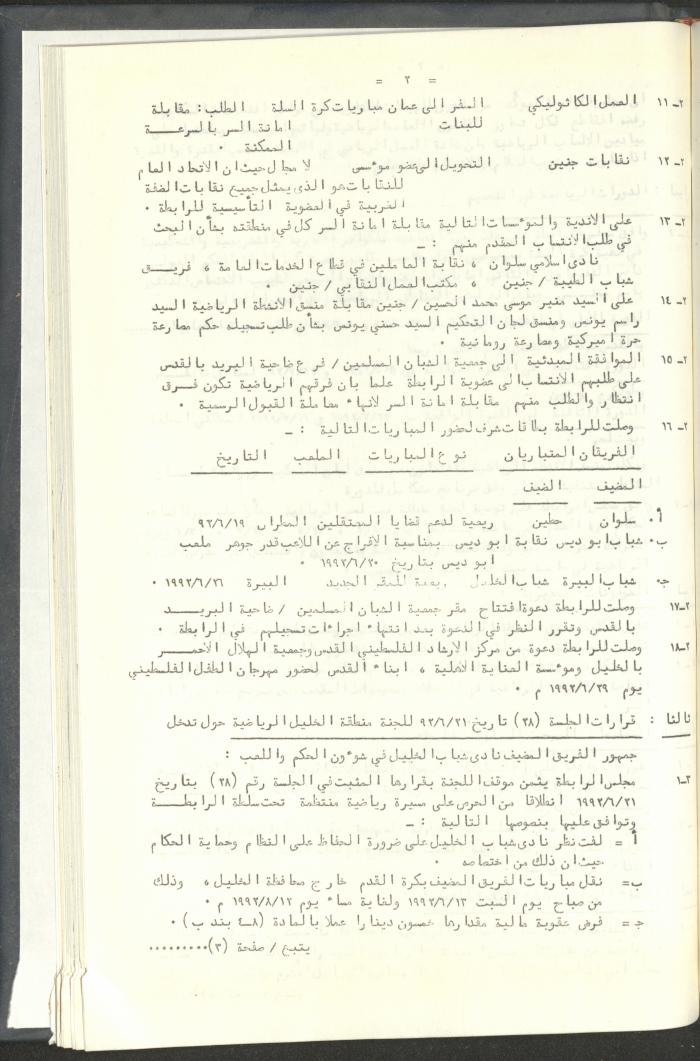 = ٢ =
٢ـ١١ العمل الكاثوليكي السفر الى عمان مباريات كرة السلة الطلب: مقابلة
للبنات امانة السر بالسرعـــة
الممكنة ٠
٢ـ١٢ نقابات جنين التحويل الى عضو مؤسس لا مجال حيث ان الاتحاد العام
للنقابات هو الذي يمثل جميع نقابات الضفة
الغربية في العضوية التأسيسية للرابطة ٠
٢ـ١٣ على الاندية والمؤسسات التالية مقابلة امانة السر كل في منطقته بشأن البحث
في طلب الانتساب المقدم منهم : ـ
نادي اسلامي سلوان ، نقابة العاملين في قطاع الخدمات العامة ، فريـــق
شباب الطيبة / جنين ، مكتب العمل النقابي / جنين ٠
٢ـ١٤ على السيد منير موسى محمد الحسين / جنين مقابلة منسق الانشطة الرياضية السيد
راسم يونس ومنسق لجان التحكيم السيد حسني يونس بشأن طلب تسجيله حكم مصارعة
حرة اميركية ومصارعة رومانية ٠
٢ـ١٥ الموافقة المبدئية الى جمعية الشبان المسلمين / فرع ضاحية البريد بالقدس
على طلبهم الانتساب الى عضوية الرابطة علما بان فرقهم الرياضية تكون فـرق
انتظار والطلب منهم مقابلة امانة السر لانهاء معاملة القبول الرسمية ٠
٢ـ١٦ وصلت للرابطة بطاقات شرف لحضور المباريات التالية : ـ
الفريقان المتباريان نوع المباريات الملعب التاريخ
المضيف الضيف
أ٠ سلوان حطين ريعية لدعم قضايا المعتقلين المطران ٩٢/٦/١٩
ب٠ شباب ابو ديس نقابة ابو ديس بمناسبة الافراج عن اللاعب قدر جوهر ملعب
ابو ديس بتاريخ ١٩٩٢/٦/٢٠ ٠
ج٠ شباب البيرة شباب الخليل ريعية الجديد البيرة ١٩٩٢/٦/٢٦ ٠
٢ـ١٧ وصلت للرابطة دعوة افتتاح مقر جمعية الشبان المسلمين / ضاحية البريـــد
بالقدس وتقرر النظر في الدعوة بعد انتهاء اجراءات تسجيلهم في الرابطة ٠
٢ـ١٨ وصلت للرابطة دعوة من مركز الارشاد الفلسطيني القدس وجمعية الهلال الاحمـــر
بالخليل ومؤسسة العناية الاهلية ، ابناء القدس لحضور مهرجان الطفل الفلسطيني
يوم ١٩٩٢/٦/٢٩ م ٠
ثالثا : قرارات الجلسة (٢٨) تاريخ ٩٢/٦/٢١ للجنة منطقة الخليل الرياضية حول تدخل
جمهور الفريق المضيف نادي شباب الخليل في شوءون الحكم واللعب :
٣ـ١ مجلس الرابطة يثمن موقف اللجنة بقرارها المثبت في الجلسة رقم (٢٨) بتاريخ
١٩٩٢/٦/٢١ انطلاقا من الحرص على مسيرة رياضية منتظمة تحت سلطة الرابطـــة
وتوافق عليها بنصوصها التالية : ـ
أ = لفت نظر نادي شباب الخليل على ضرورة الحفاظ على النظام وحماية الحكام
حيث ان ذلك من اختصاصه ٠
ب= نقل مباريات الفريق المضيف بكرة القدم خارج محافظة الخليل ، وذلك
من صباح يوم السبت ١٩٩٢/٦/١٣ ولغاية مساء يوم ١٩٩٢/٨/١٢ م ٠
ج = فرض عقوبة مالية مقدارها خمسون دينارا عملا بالمادة (٨ـ٤ بند ب) ٠
يتبع / صفحة (٣)٠٠٠٠٠٠٠٠٠